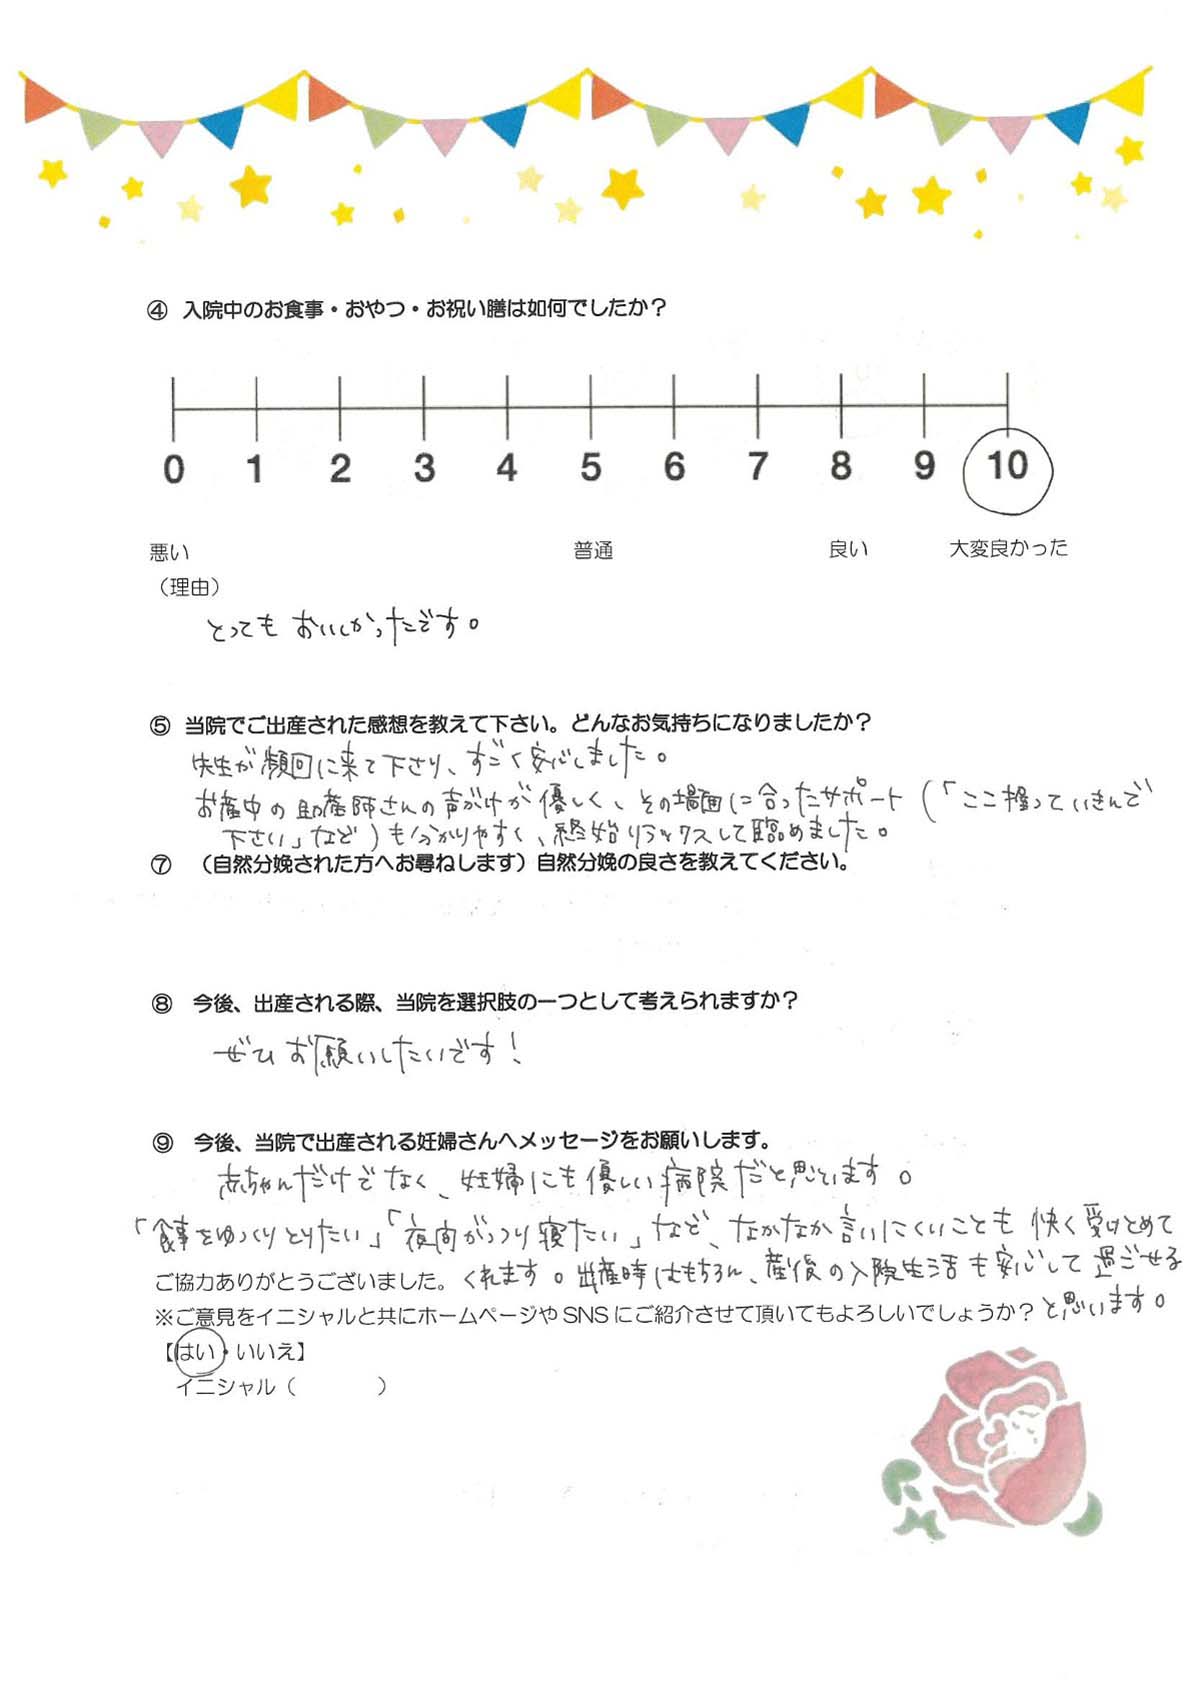 ④ 入院中のお食事・おやつ・お祝い膳は如何でしたか？
0 1 2 3 4 5 6 7 8 9 10
悪い 普通 良い 大変良かった
（理由）
とってもおいしかったです。
⑤ 当院でご出産された感想を教えて下さい。どんなお気持ちになりましたか？
先生が頻回に来て下さり、すごく安心しました。
お産中の助産師さんの声がけが優しく、その場面に合ったサポート（「ここ握っていきんで
下さい」など）も分かりやすく、終始リラックスして臨めました。
⑦ （自然分娩された方へお尋ねします）自然分娩の良さを教えてください。
⑧ 今後、出産される際、当院を選択肢の一つとして考えられますか？
ぜひお願いしたいです！
⑨ 今後、当院で出産される妊婦さんへメッセージをお願いします。
赤ちゃんだけでなく、妊婦にも優しい病院だと思います。
「食事をゆっくりとりたい」「夜間がっつり寝たい」など、なかなか言いにくいことも快く受けとめて
くれます。出産時はもちろん、産後の入院生活も安心して過ごせる
と思います。
ご協力ありがとうございました。
※ご意見をイニシャルと共にホームページやSNSにご紹介させて頂いてもよろしいでしょうか？
【はい・いいえ】
イニシャル（　　　）